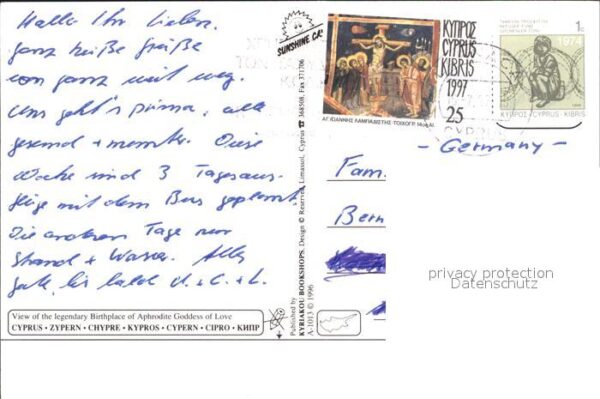 Hallo Ihr Lieben.
ganz heiße Grüße
von ganz weit weg.
Uns geht's prima, alle
gesund + munter. Diese
Woche sind 3 Tagesaus-
flüge mit dem Bus geplant
Die anderen Tage nur
Strand + Wasser. Alles
gute, bis bald
View of the legendary Birthplace of Aphrodite Goddess of Love
CYPRUS • ZYPERN • CHYPRE • KYPROS • CYPERN • CIPRO • КИПР
SUNSHINE
Published by
KYRIAKOU BOOKSHOPS. Design © Reserved, Limassol, Cyprus ☎ 368508. Fax 371706
A-1013 © 1996
ΚΥΠΡΟΣ
CYPRUS
KIBRIS
1997
25
ΑΓ. ΙΩΑΝΝΗΣ ΛΑΜΠΑΔΙΣΤΗΣ ΤΟΙΧΟΓΡ. 14ος ΑΙ.
1c
1974
ΚΥΠΡΟΣ-CYPRUS-KIBRIS
- Germany -
Fam.
Bern
privacy protection
Datenschutz